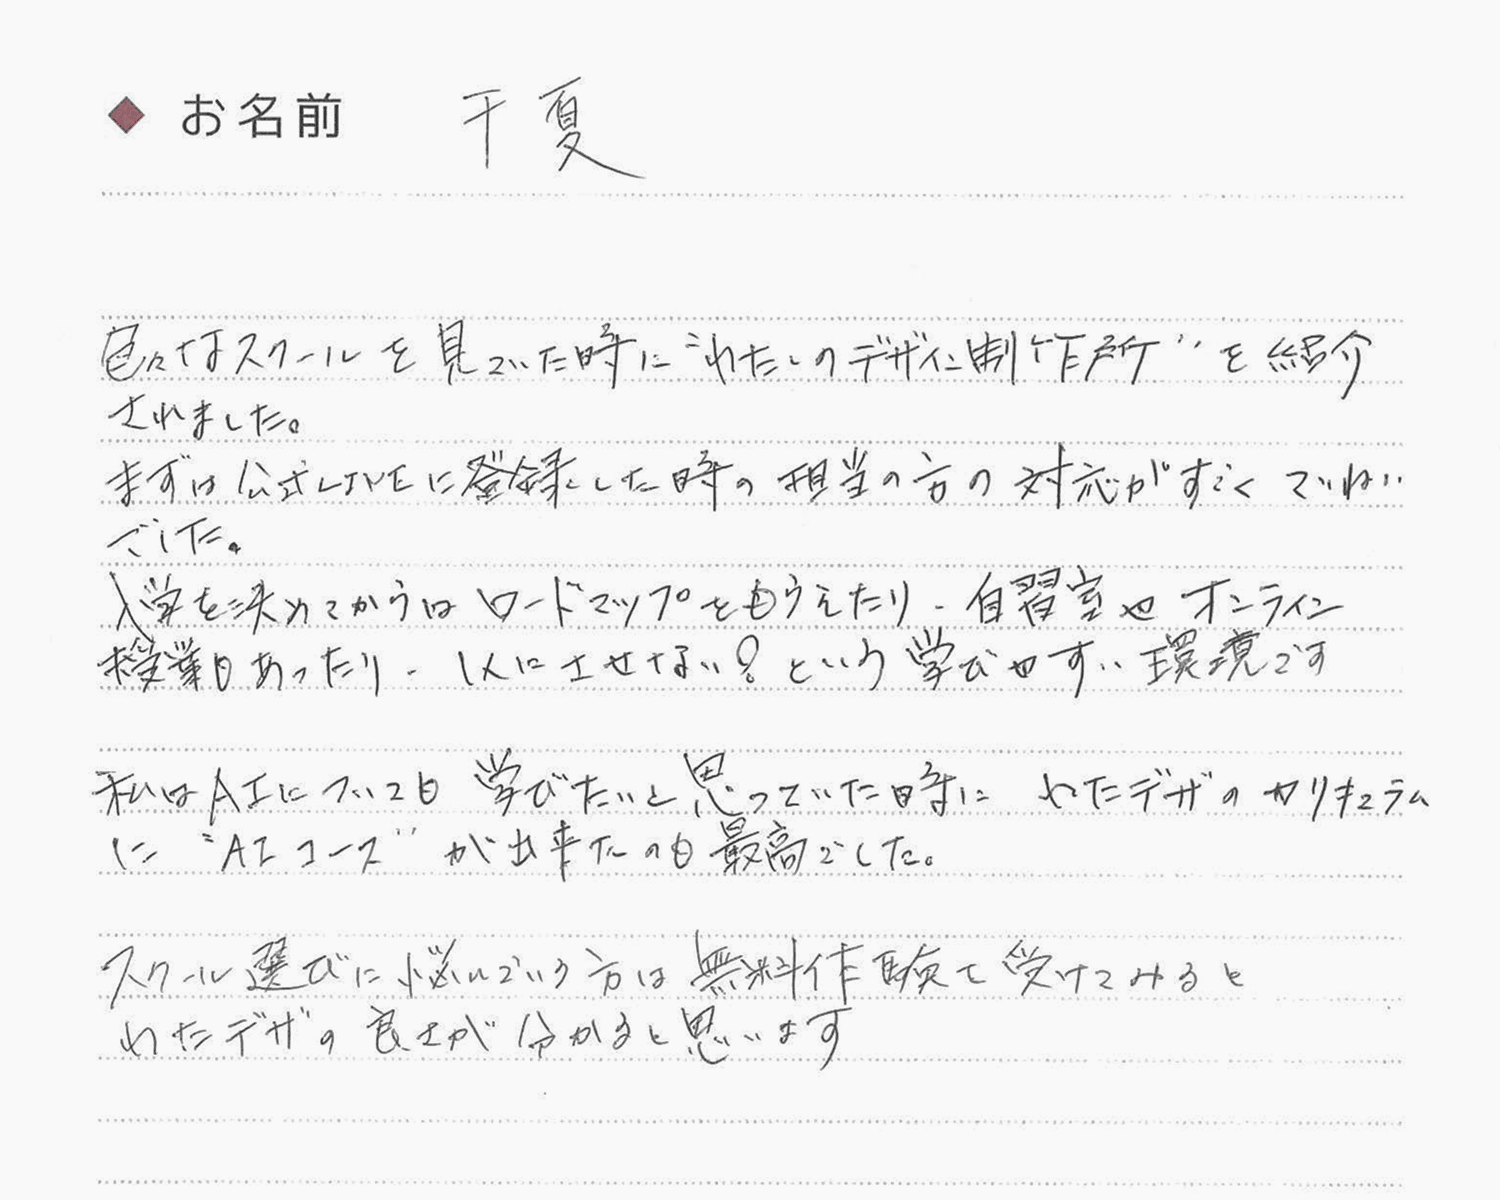 ◆ お名前 千夏
色々なスクールを見ていた時に"わたしのデザイン制作所"を紹介
されました。
まずは公式LINEに登録した時の担当の方の対応がすごくていねい
でした。
入学を決めてからはロードマップをもらえたり、自習室やオンライン
授業もあったり、1人にさせない?という学びやすい環境です
私はAIについても学びたいと思っていた時にわたデザのカリキュラム
に"AIコース"が出来たのも最高でした。
スクール選びに悩んでいる方は無料体験を受けてみると
わたデザの良さが分かると思います